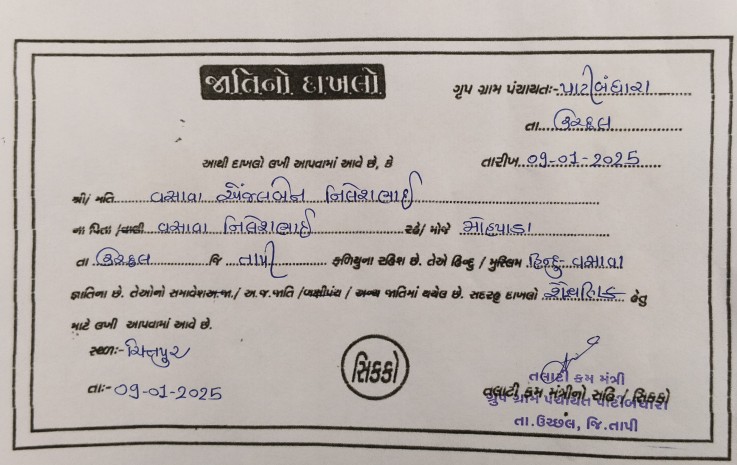 જાતિનો દાખલો
ગૃપ ગ્રામ પંચાયતઃ- પાટીબંધારા
તા. ઉચ્છલ
આથી દાખલો લખી આપવામાં આવે છે, કે તારીખ 09-01-2025
શ્રી/ મતિ વસાવા અંજલબેન નિલેશભાઈ
ના પિતા /વાલી વસાવા નિલેશભાઈ રહે/ મોજે મોહપાડા
તા ઉચ્છલ જિ તાપી ફળિયુના રહિશ છે. તેઓ હિન્દુ / મુસ્લિમ હિન્દુ- વસાવા
જ્ઞાતિના છે. તેઓનો સમાવેશઅ.જા./ અ.જ.જાતિ /બક્ષીપંચ / અન્ય જાતિમાં થયેલ છે. સદરહુ દાખલો હેતુ
માટે લખી આપવામાં આવે છે.
સ્થળઃ-
તાઃ- 09-01-2025
સિકકો
તલાટી કમ મંત્રી
તલાટી કમ મંત્રીનો સહિ / સિકકો
ગૃપ ગ્રામ પંચાયત પાટીબંધારા
તા.ઉચ્છલ, જિ.તાપી